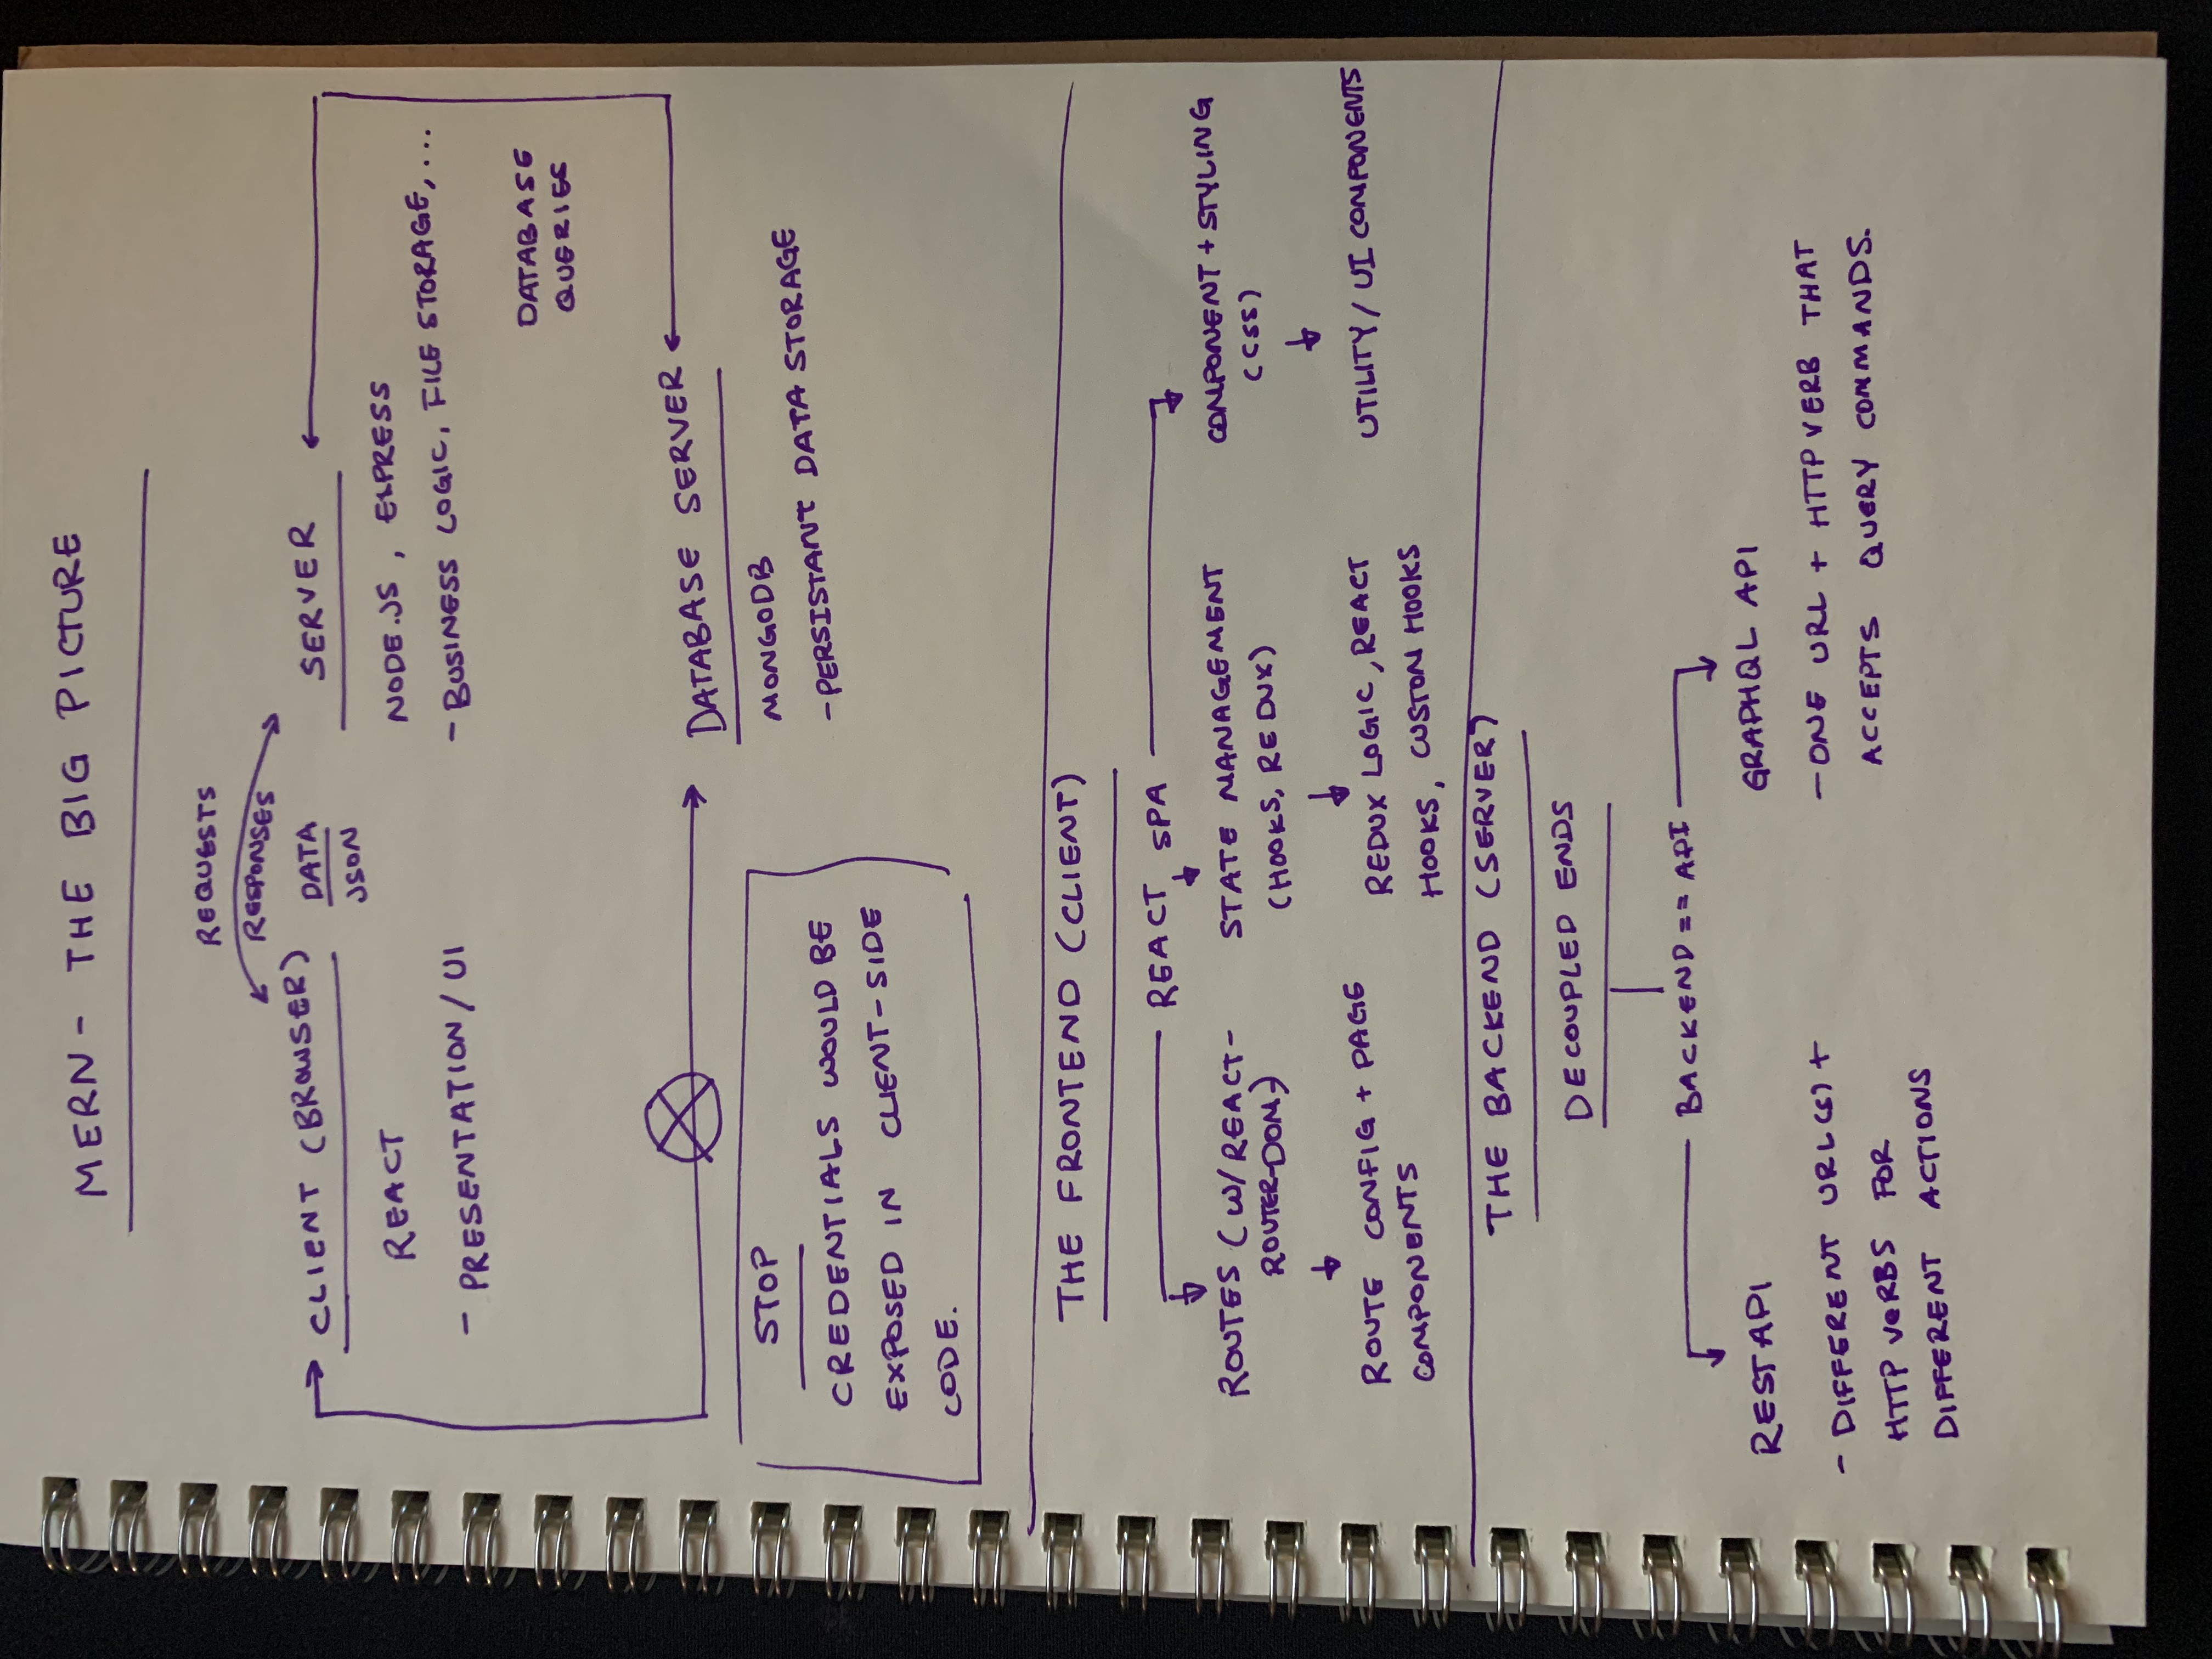 MERN - THE BIG PICTURE
REQUESTS
RESPONSES
CLIENT (BROWSER)
DATA
JSON
SERVER
REACT
- PRESENTATION / UI
NODE.JS, EXPRESS
- BUSINESS LOGIC, FILE STORAGE, ...
DATABASE
QUERIES
DATABASE SERVER
MONGODB
- PERSISTANT DATA STORAGE
STOP
CREDENTIALS WOULD BE
EXPOSED IN CLIENT-SIDE
CODE.
THE FRONTEND (CLIENT)
REACT SPA
ROUTES (W/REACT-
ROUTER-DOM)
STATE MANAGEMENT
(HOOKS, REDUX)
COMPONENT + STYLING
(CSS)
ROUTE CONFIG + PAGE
COMPONENTS
REDUX LOGIC, REACT
HOOKS, CUSTON HOOKS
UTILITY / UI COMPONENTS
THE BACKEND (SERVER)
DECOUPLED ENDS
BACKEND == API
REST API
- DIFFERENT URL(S) +
HTTP VERBS FOR
DIFFERENT ACTIONS
GRAPHQL API
- ONE URL + HTTP VERB THAT
ACCEPTS QUERY COMMANDS.